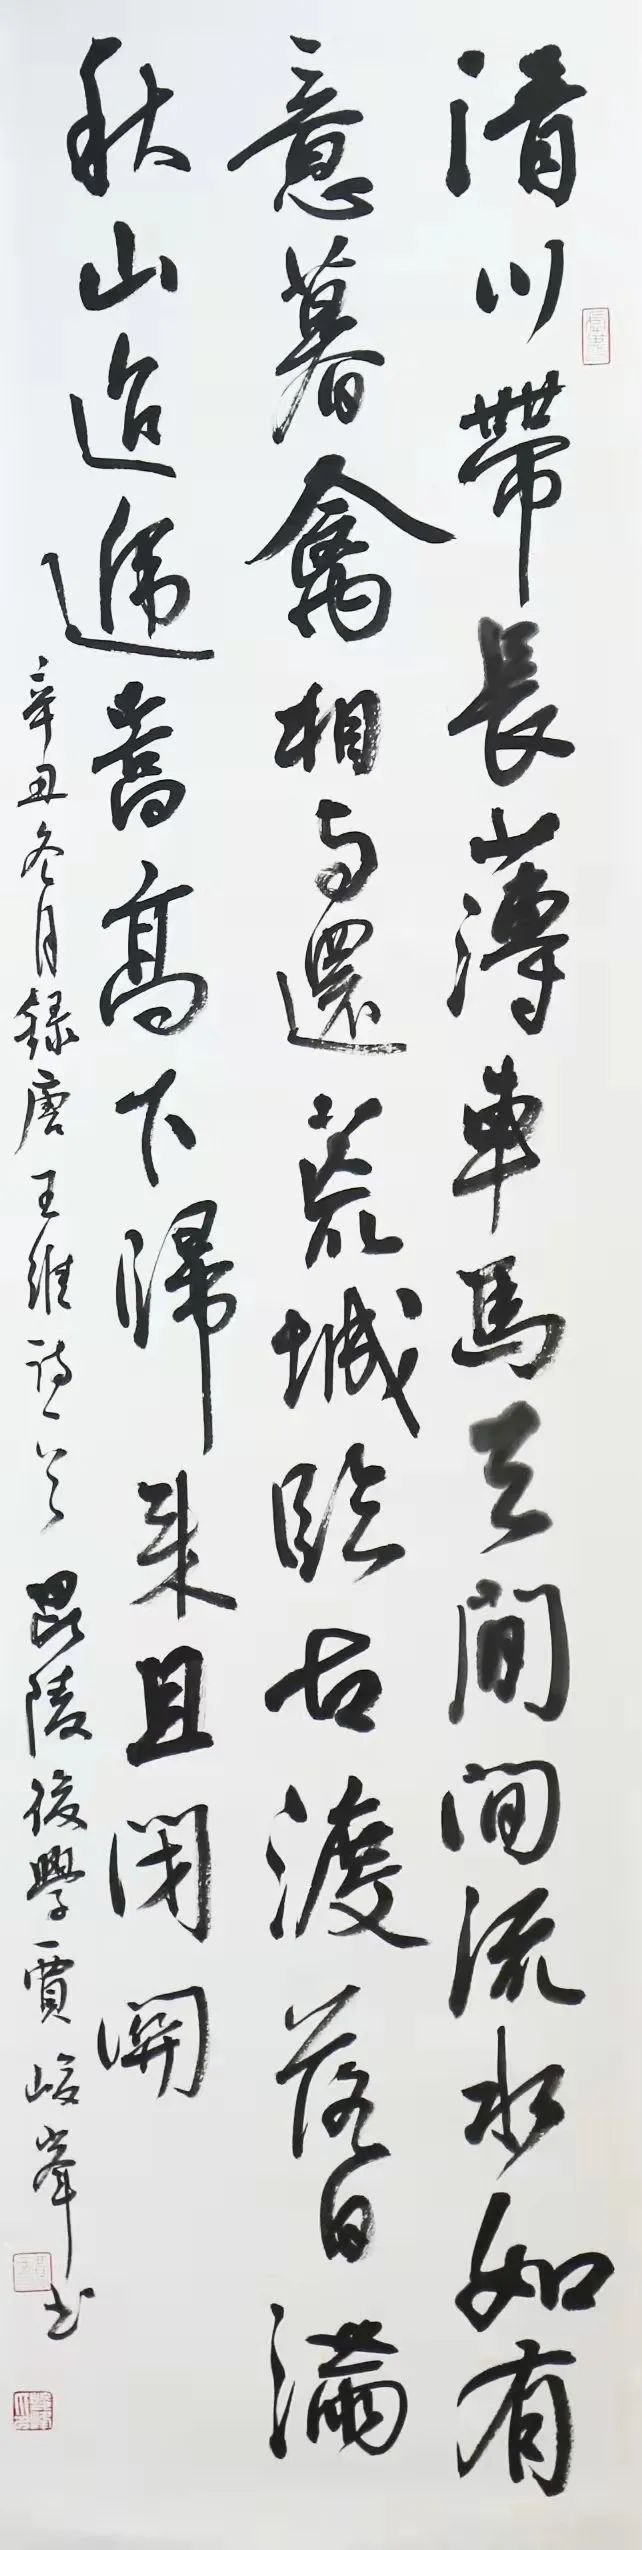 清川帶長薄車馬去閒閒流水如有
意暮禽相与還荒城臨古渡落日滿
秋山迢遞嵩高下歸来且閉關
辛丑冬月録唐王維詩一首 毘陵後學賈峻峯书